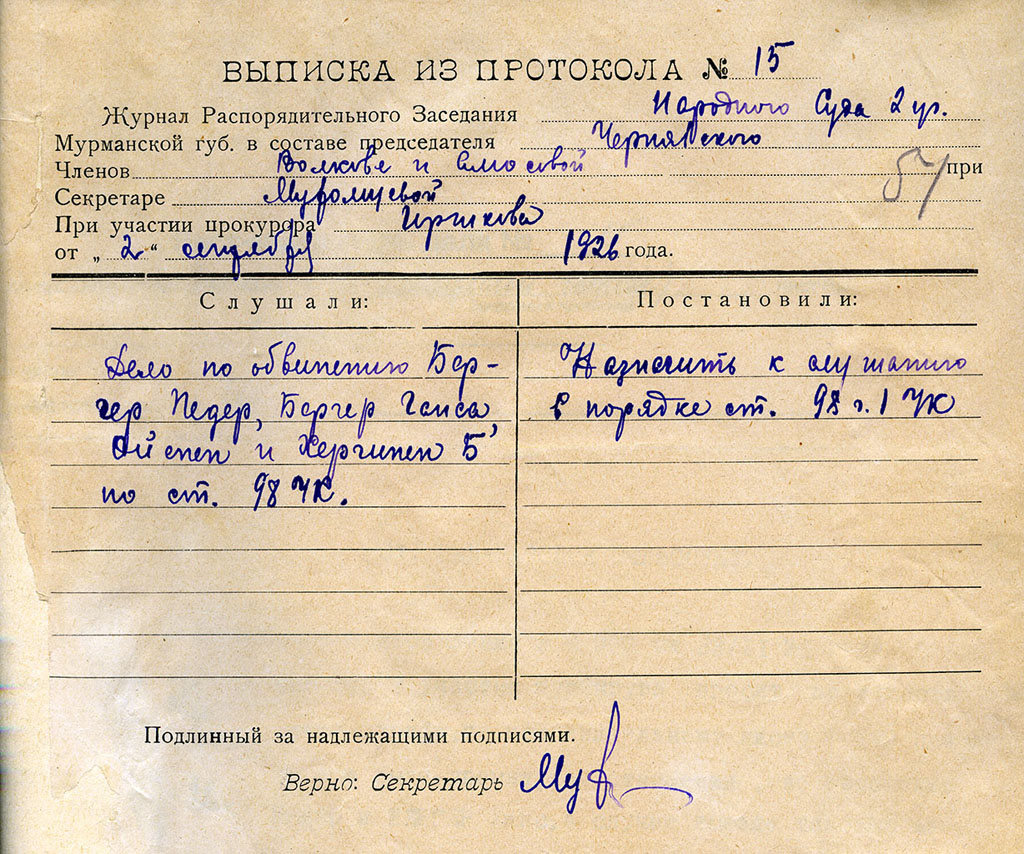 ВЫПИСКА ИЗ ПРОТОКОЛА № 15
Журнал Распорядительного Заседания Народного Суда 2 уч.
Мурманской губ. в составе председателя Чернявского
Членов Волкове и при
57
Секретаре Муромцевой
При участии прокурора
от „ 2 “ сентября 1926 года.
Слушали:
Постановили:
Дело по обвинению Бер-
гер Педер, Бергер Ганса
и
по ст. 98 УК.
Назначить к слушанию
в порядке ст. 98 г. 1 УК
Подлинный за надлежащими подписями.
Верно: Секретарь Мур